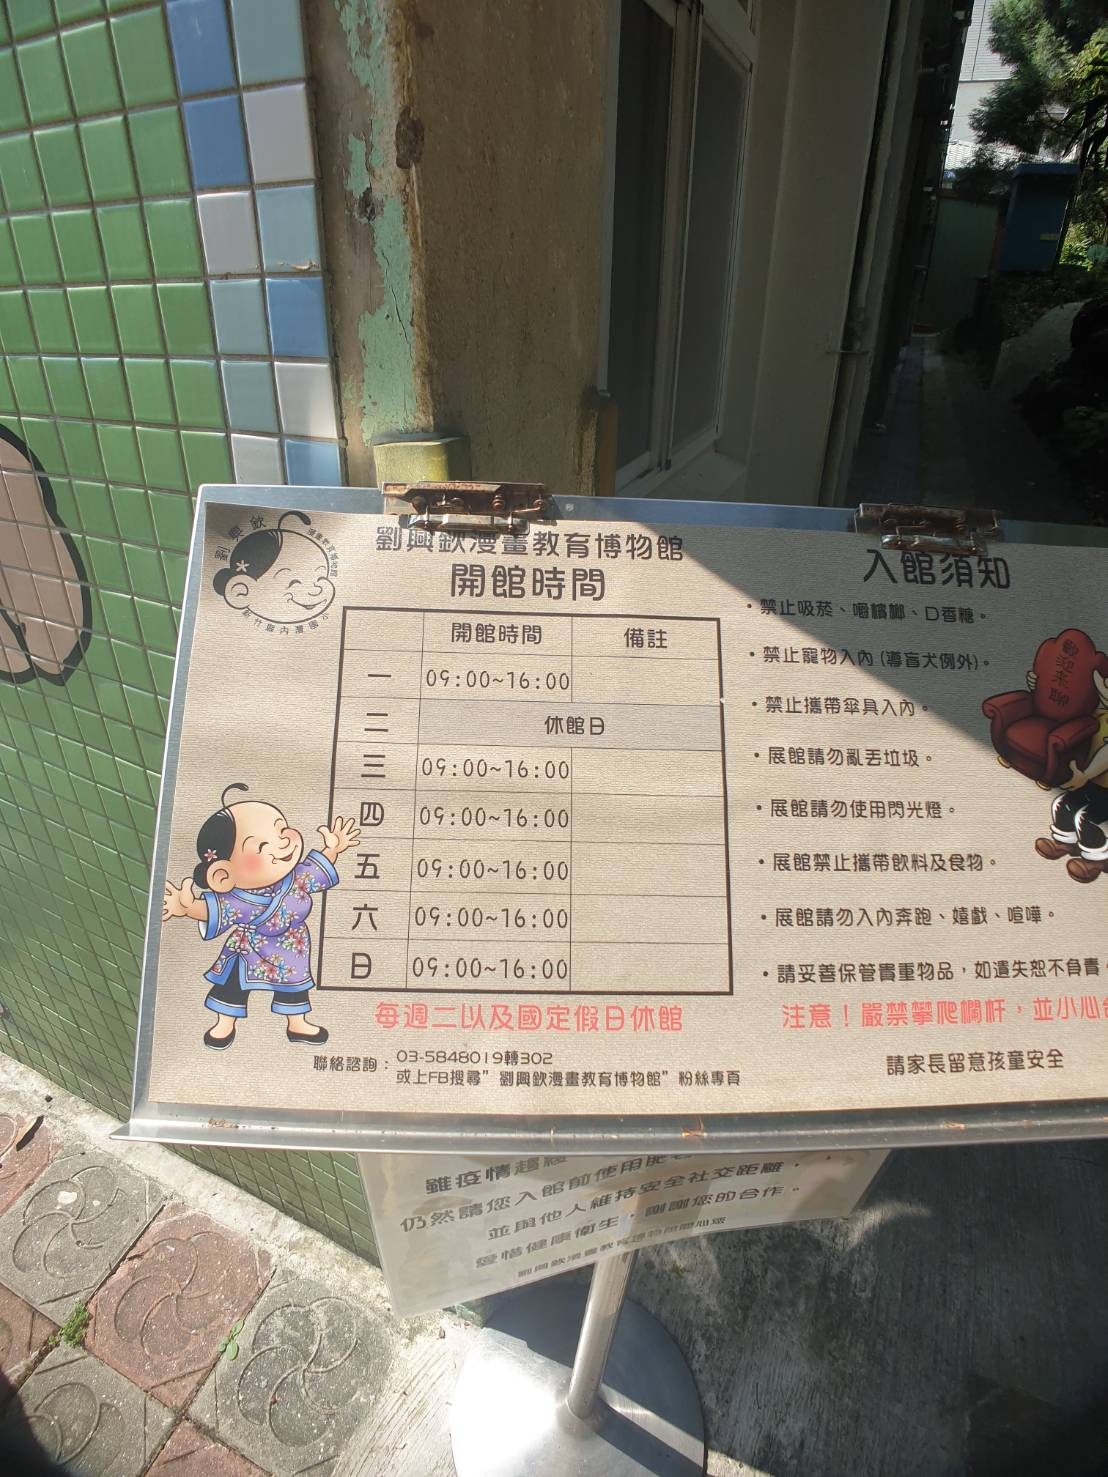 劉興欽
漫畫教育博物館
新竹縣內灣國小
劉興欽漫畫教育博物館
開館時間
開館時間 備註
一 09:00~16:00
二 休館日
三 09:00~16:00
四 09:00~16:00
五 09:00~16:00
六 09:00~16:00
日 09:00~16:00
每週二以及國定假日休館
聯絡諮詢：03-5848019轉302
或上FB搜尋”劉興欽漫畫教育博物館”粉絲專頁
入館須知
•禁止吸菸、嚼檳榔、口香糖。
•禁止寵物入內(導盲犬例外)。
•禁止攜帶傘具入內。
•展館請勿亂丟垃圾。
•展館請勿使用閃光燈。
•展館禁止攜帶飲料及食物。
•展館請勿入內奔跑、嬉戲、喧嘩。
•請妥善保管貴重物品，如遺失恕不負責。
注意！嚴禁攀爬欄杆，並小心
請家長留意孩童安全
歡迎來聊
雖疫情趨緩
仍然請您入館前使用肥
並與他人維持安全社交距離，
愛惜健康衛生，謝謝您的合作。
劉興欽漫畫教育博物館關心您